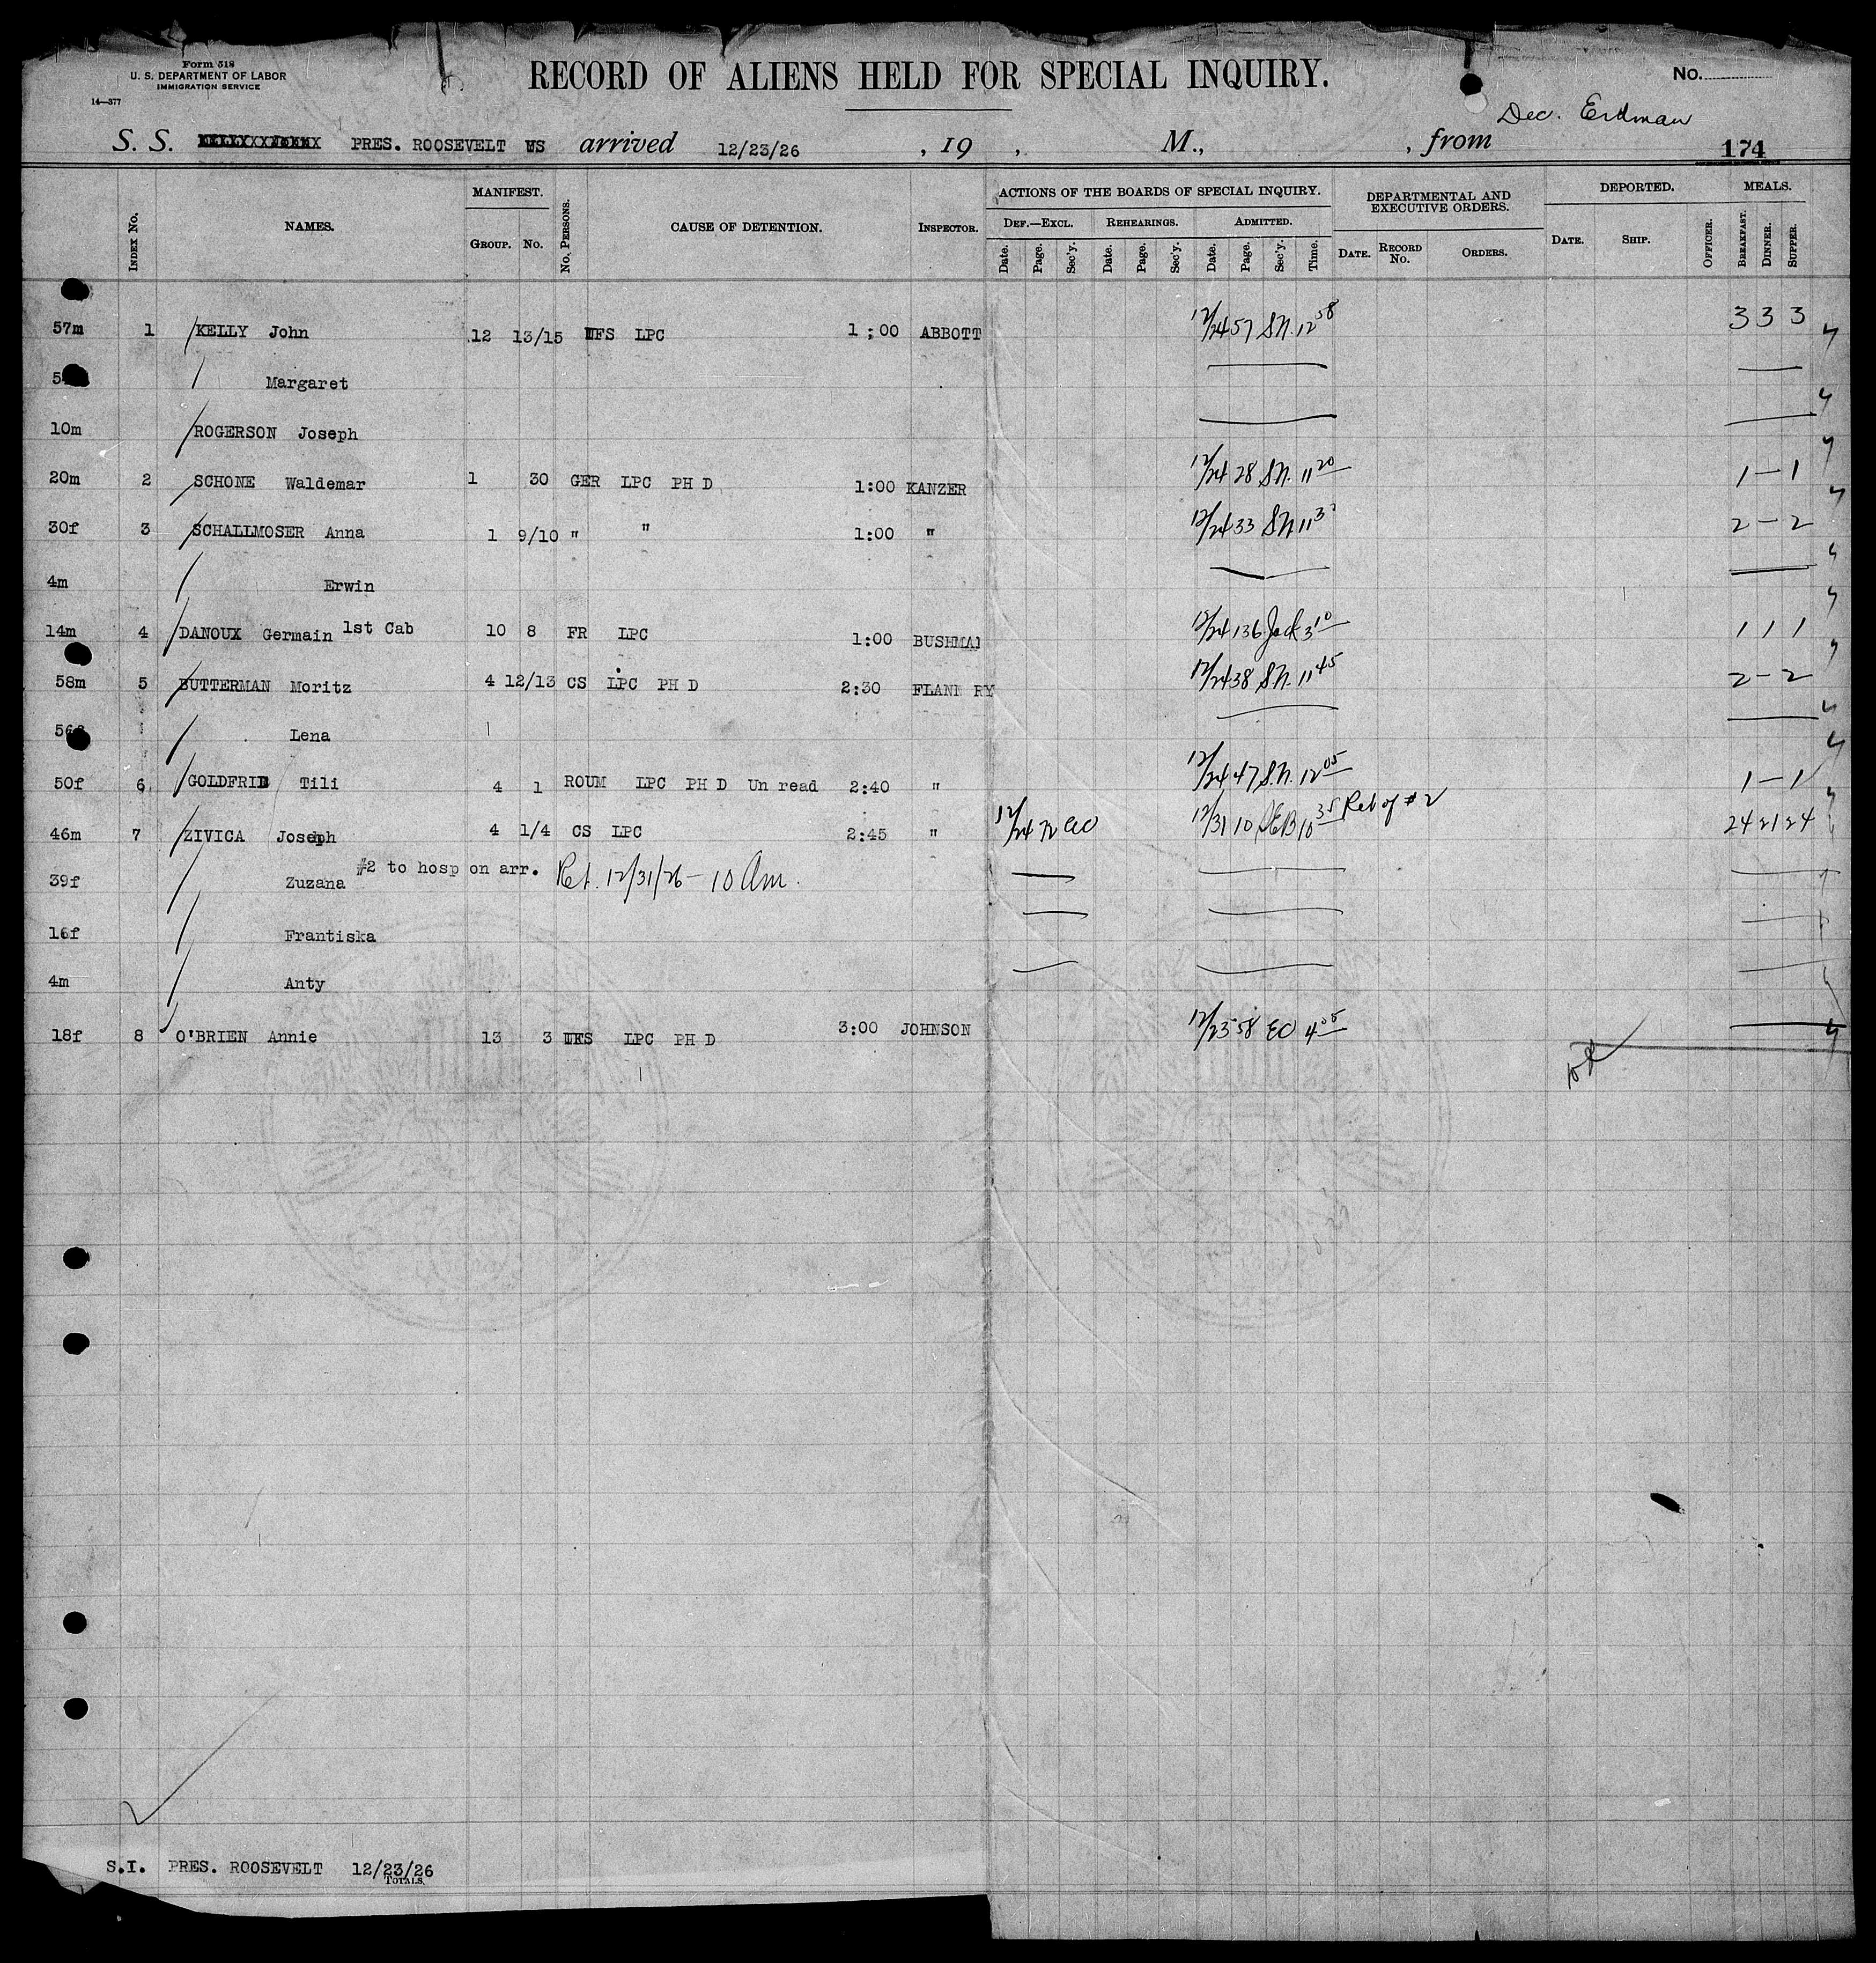 Form 518
U. S. DEPARTMENT OF LABOR
IMMIGRATION SERVICE
14—377
RECORD OF ALIENS HELD FOR SPECIAL INQUIRY.
No.
Dec. Erdman
S. S. PRES. ROOSEVELT WS arrived 12/23/26 , 19 , M., , from 174
INDEX NO. NAMES. MANIFEST. GROUP. NO. NO. PERSONS. CAUSE OF DETENTION. INSPECTOR.
ACTIONS OF THE BOARDS OF SPECIAL INQUIRY. DEF.—EXCL. REHEARINGS. ADMITTED.
Date. Page. Sec'y. Date. Page. Sec'y. Date. Page. Sec'y. Time.
DEPARTMENTAL AND EXECUTIVE ORDERS. DATE. RECORD NO. ORDERS.
DEPORTED. DATE. SHIP. OFFICER.
MEALS. BREAKFAST. DINNER. SUPPER.
57m 1 KELLY John 12 13/15 IFS LPC 1:00 ABBOTT 12/24 57 SN. 12 58 3 3 3
Margaret
10m ROGERSON Joseph
20m 2 SCHONE Waldemar 1 30 GER LPC PH D 1:00 KANZER 12/24 28 SN. 11 20 1 — 1
30f 3 SCHALLMOSER Anna 1 9/10 " " 1:00 " 12/24 33 SN 11 2 — 2
4m Erwin
14m 4 DANOUX Germain 1st Cab 10 8 FR LPC 1:00 BUSHMAN 12/24 136 Jack 3 10 1 1 1
58m 5 BUTTERMAN Moritz 4 12/13 CS LPC PH D 2:30 FLANN RY 12/24 38 SN. 11 45 2 — 2
56f Lena
50f 6 GOLDFRIB Tili 4 1 ROUM LPC PH D Un read 2:40 " 12/24 47 S.N. 12 05 1 — 1
46m 7 ZIVICA Joseph 4 1/4 CS LPC 2:45 " 12/24 72 EO 12/31 10 JEB 10 35 Ret of #2 24 21 24
39f Zuzana #2 to hosp on arr. Ret. 12/31/26 — 10 Am.
16f Frantiska
4m Anty
18f 8 O'BRIEN Annie 13 3 IFS LPC PH D 3:00 JOHNSON 12/23 58 EO 4 05
S.I. PRES. ROOSEVELT 12/23/26
TOTALS.